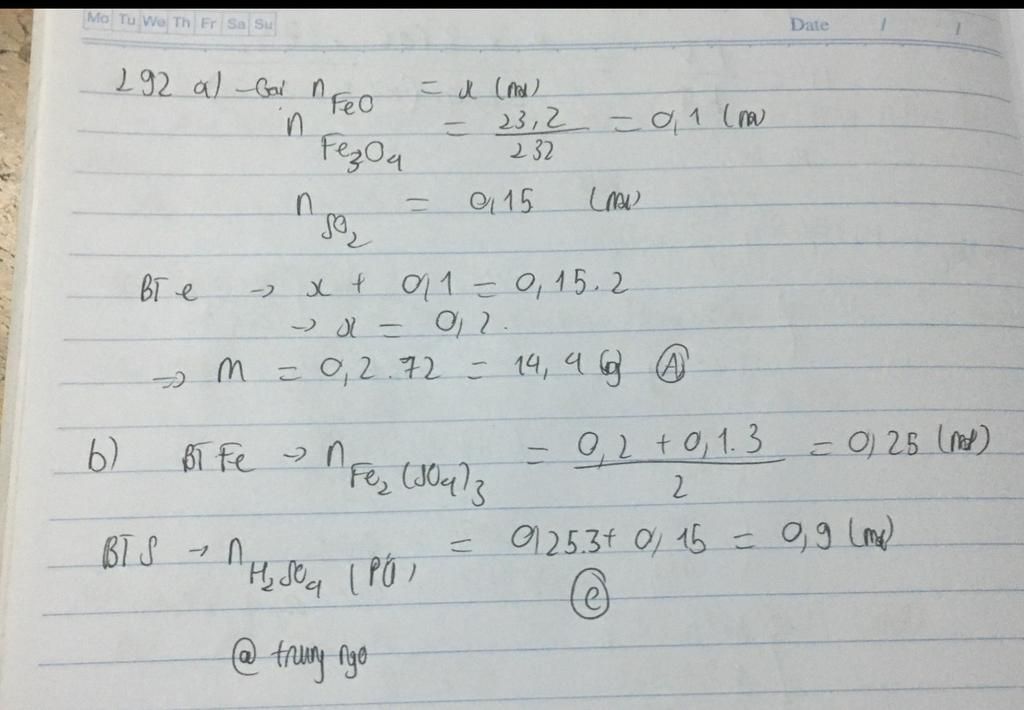 Mo Tu We Th Fr Sa Su Date / /
292 a) - Gọi n FeO = x (mol)
n Fe3O4 = 23,2 / 232 = 0,1 (mol)
n SO2 = 0,15 (mol)
BT e → x + 0,1 = 0,15.2
→ x = 0,2.
⇒ m = 0,2.72 = 14,4 (g) Ⓐ
b) BT Fe → n Fe2(SO4)3 = (0,2 + 0,1.3) / 2 = 0,25 (mol)
BT S → n H2SO4 (PƯ) = 0,25.3 + 0,15 = 0,9 (mol)
Ⓒ
@ trung ngo